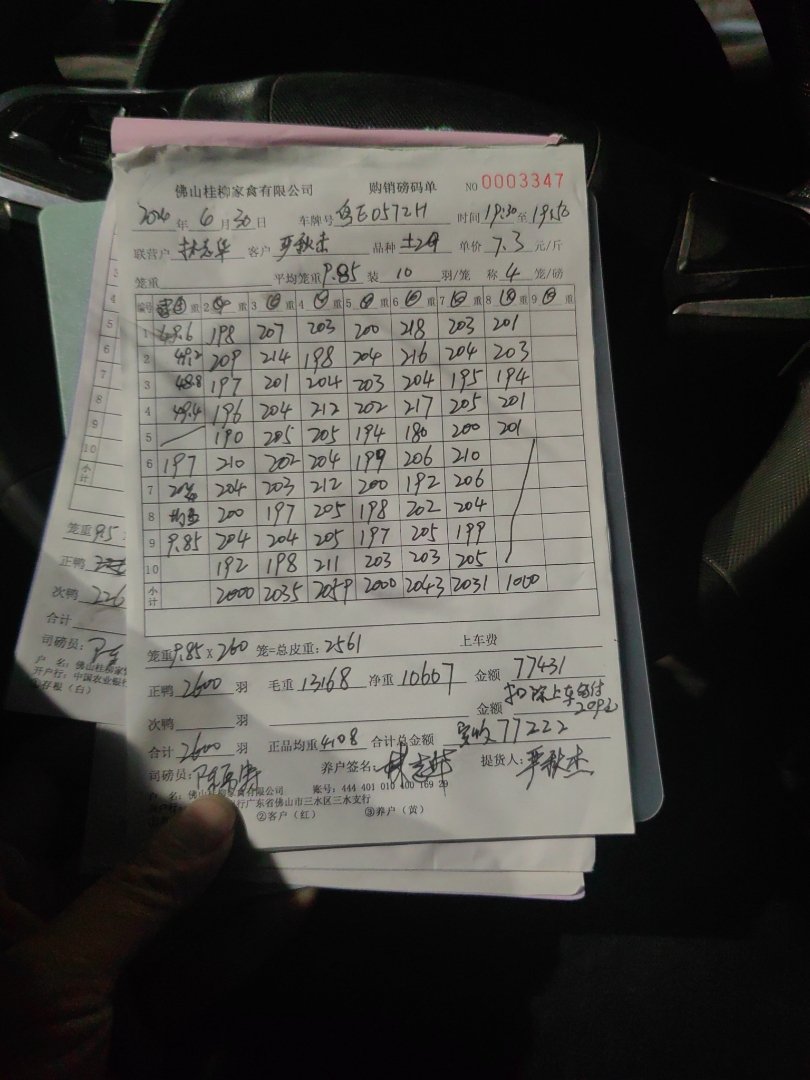 佛山桂柳家禽有限公司 购销磅码单 NO 0003347
年 6 月 30 日 车牌号 粤E0572H 时间 19:30 至 19:50
联营户 林志华 客户 严秋杰 品种 土2 单价 7.3 元/斤
笼重 平均笼重 9.85 装 10 羽/笼 称 4 笼/磅
编号 重 2 重 3 重 4 重 5 重 6 重 7 重 8 重 9 重
1 49.6 198 207 203 200 218 203 201
2 49.2 209 214 198 204 216 204 203
3 48.8 197 201 204 203 204 195 194
4 49.4 196 204 212 202 217 205 201
5 190 205 205 194 180 200 201
6 197 210 202 204 199 206 210
7 204 203 212 200 192 206
8 均重 200 197 205 198 202 204
9 9.85 204 204 205 197 205 199
10 192 198 211 203 203 205
小计 2000 2035 2059 2000 2043 2031 1000
笼重 9.85 x 260 笼=总皮重: 2561 上车费
正鸭 2600 羽 毛重 13168 净重 10607 金额 77431
扣除上车钱付
次鸭 羽 金额 209元
合计 2600 羽 正品均重 4.08 合计总金额 实收 77222
司磅员: 养户签名: 林志华 提货人: 严秋杰
户 名: 佛山桂柳家禽有限公司 账号: 444 401 010 400 169 29
行广东省佛山市三水区三水支行
②客户(红) ③养户(黄)
1
2
3
4
5
6
7
8
9
10
小计
笼重 9.5
正鸭
次鸭 226
合计
司磅员:
户 名: 佛山桂柳家
开户行: 中国农业银行
①存根(白)